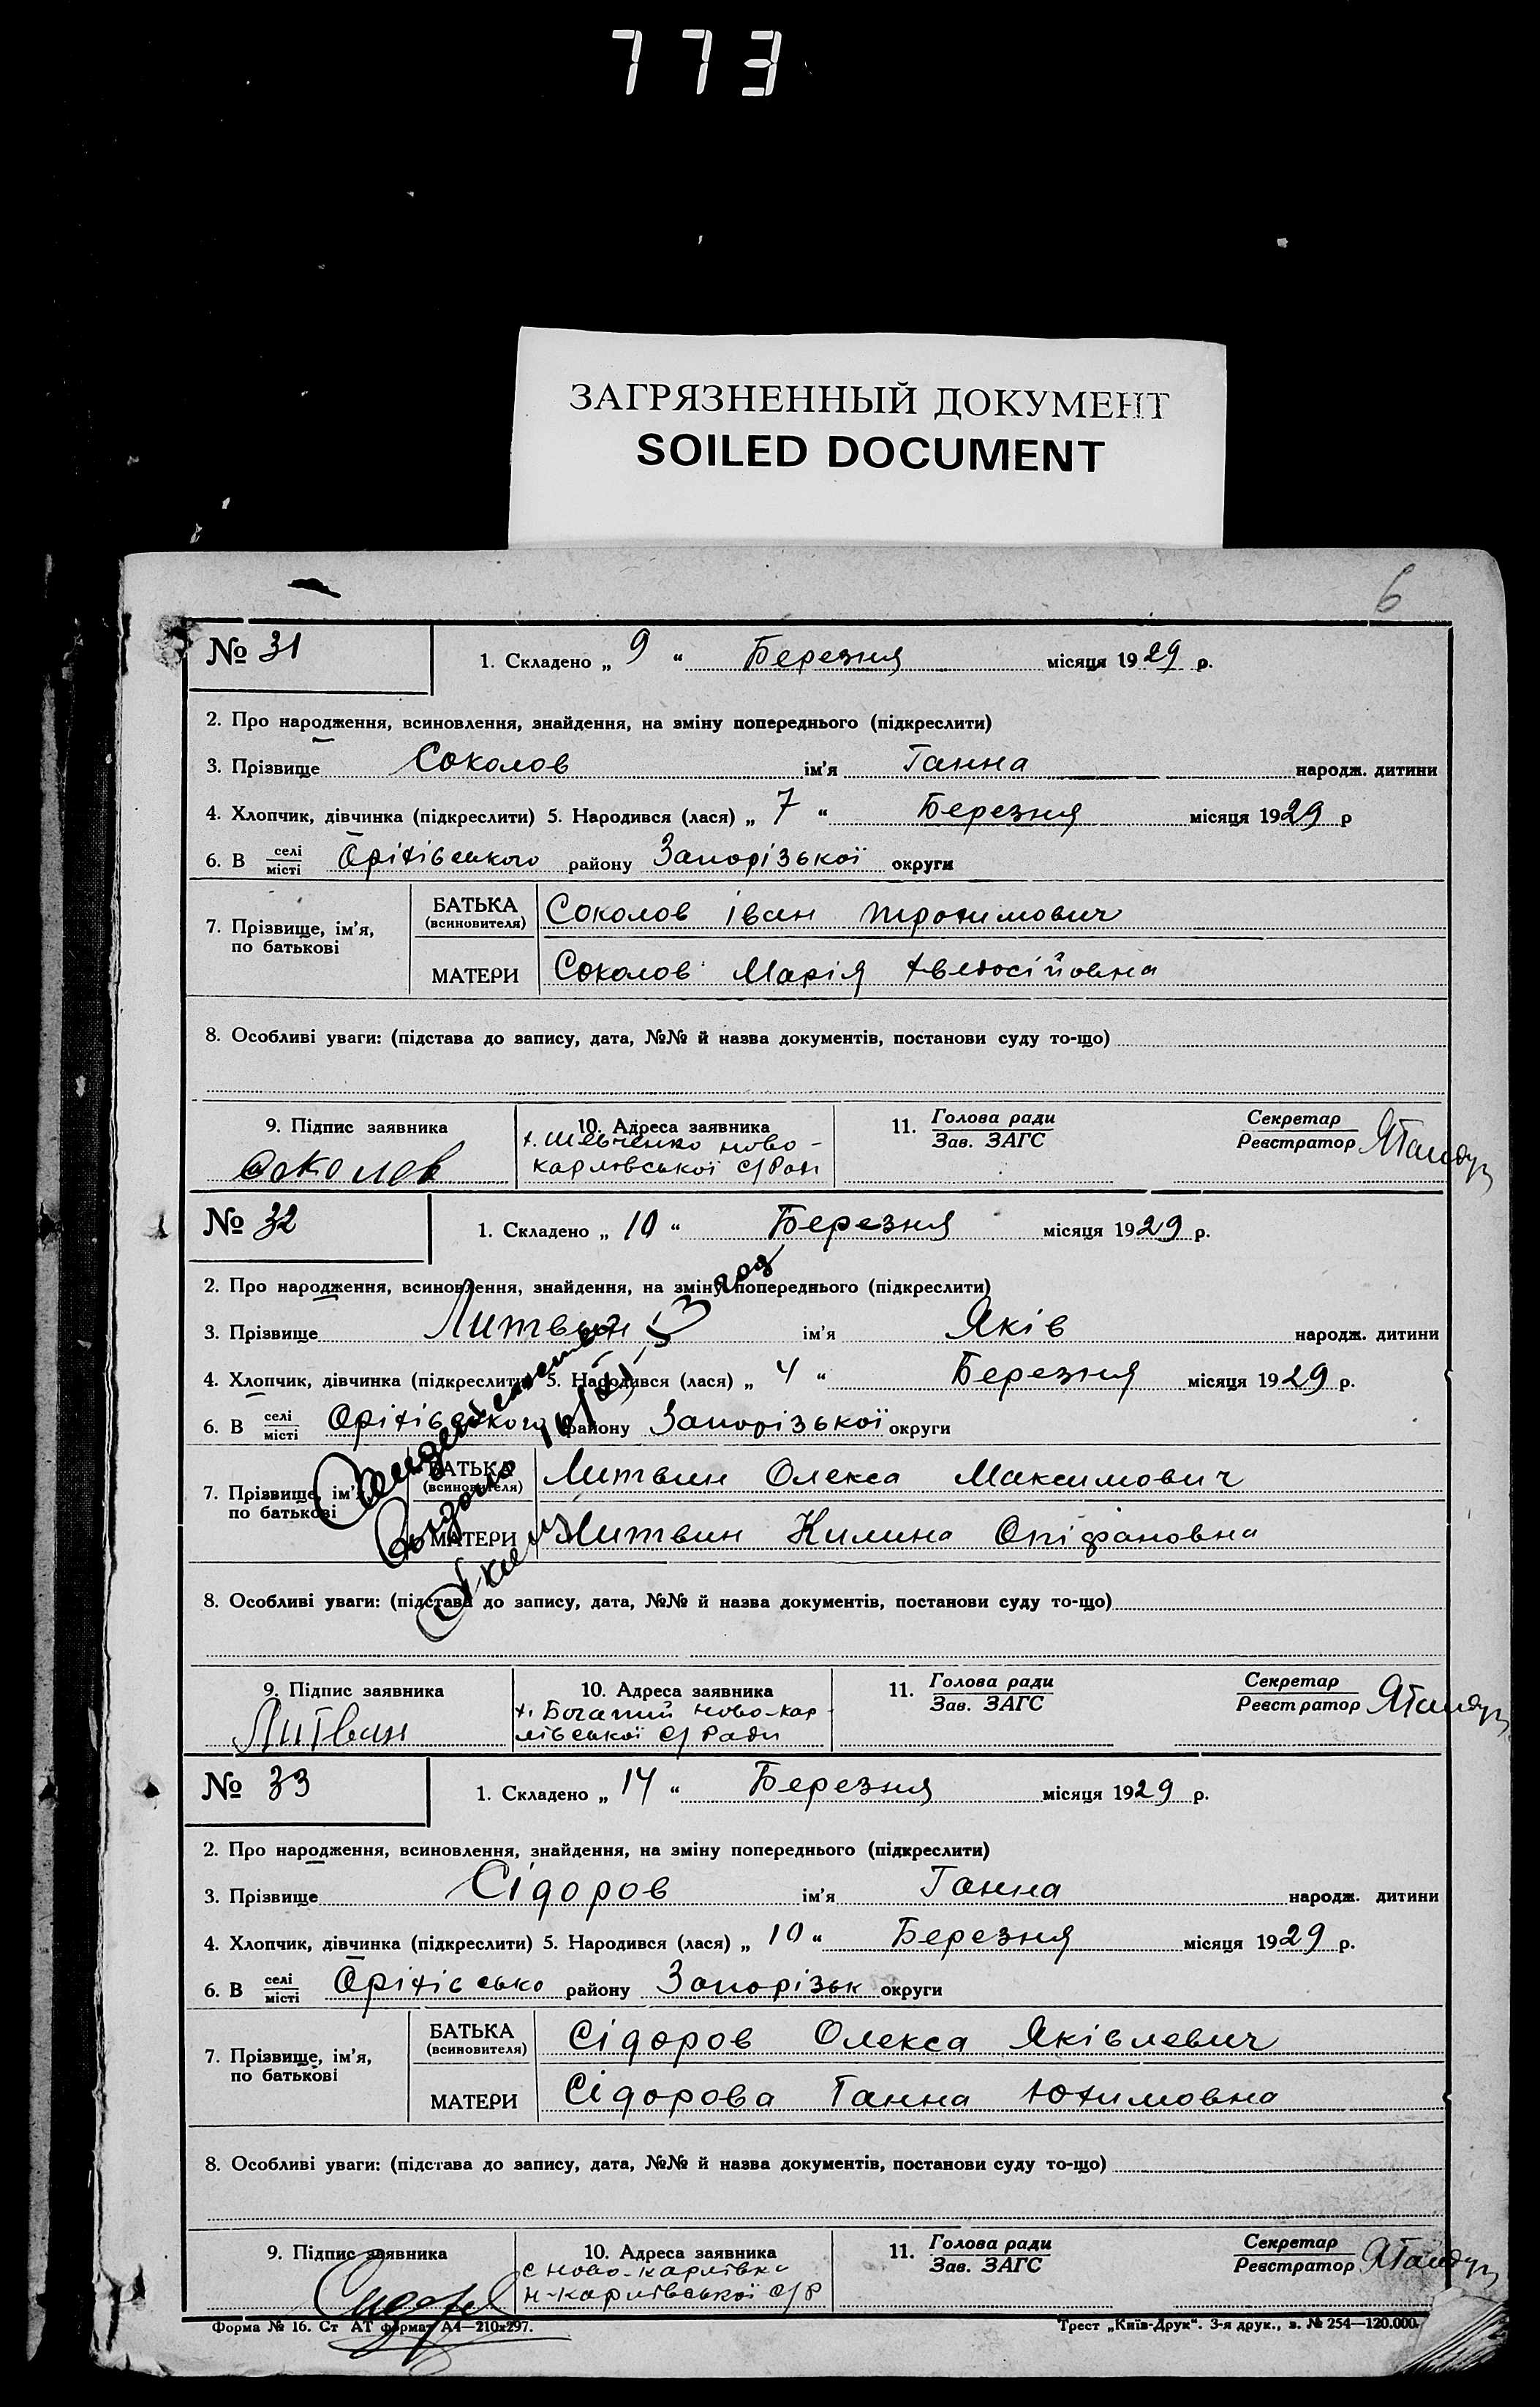 773
ЗАГРЯЗНЕННЫЙ ДОКУМЕНТ
SOILED DOCUMENT
6
№ 31 1. Складено „ 9 “ Березня місяця 1929 р.
2. Про народження, всиновлення, знайдення, на зміну попереднього (підкреслити)
3. Прізвище Соколов ім'я Ганна народж. дитини
4. Хлопчик, дівчинка (підкреслити) 5. Народився (лася) „ 7 “ Березня місяця 1929 р
6. В селі/місті Оріхівського району Запорізької округи
7. Прізвище, ім'я, по батькові
БАТЬКА (всиновителя) Соколов Іван Трохимович
МАТЕРИ Соколов Марія Хведосіївна
8. Особливі уваги: (підстава до запису, дата, №№ й назва документів, постанови суду то-що)
9. Підпис заявника 10. Адреса заявника 11. Голова ради/Зав. ЗАГС Секретар/Реєстратор
Соколов х. Шевченко Ново-
карлівської с/Ради
№ 32 1. Складено „ 10 “ Березня місяця 1929 р.
2. Про народження, всиновлення, знайдення, на зміну попереднього (підкреслити)
3. Прізвище Литвин ім'я Яків народж. дитини
4. Хлопчик, дівчинка (підкреслити) 5. Народився (лася) „ 4 “ Березня місяця 1929 р.
6. В селі/місті Оріхівського району Запорізької округи
7. Прізвище, ім'я, по батькові
БАТЬКА (всиновителя) Литвин Олекса Максимович
МАТЕРИ Литвин Килина Опіфановна
8. Особливі уваги: (підстава до запису, дата, №№ й назва документів, постанови суду то-що)
9. Підпис заявника 10. Адреса заявника 11. Голова ради/Зав. ЗАГС Секретар/Реєстратор
Литвин х. Богатий Ново-кар
лівської с/Ради
№ 33 1. Складено „ 14 “ Березня місяця 1929 р.
2. Про народження, всиновлення, знайдення, на зміну попереднього (підкреслити)
3. Прізвище Сідоров ім'я Ганна народж. дитини
4. Хлопчик, дівчинка (підкреслити) 5. Народився (лася) „ 10 “ Березня місяця 1929 р.
6. В селі/місті Оріхівсько району Запорізьк округи
7. Прізвище, ім'я, по батькові
БАТЬКА (всиновителя) Сідоров Олекса Яківлевич
МАТЕРИ Сідорова Ганна Юхимовна
8. Особливі уваги: (підстава до запису, дата, №№ й назва документів, постанови суду то-що)
9. Підпис заявника 10. Адреса заявника 11. Голова ради/Зав. ЗАГС Секретар/Реєстратор
с Ново-карлівка
Н-карлівської с/Р
Форма № 16. Ст АТ формат А4—210x297. Трест „Київ-Друк“. 3-я друк., з. № 254—120.000.